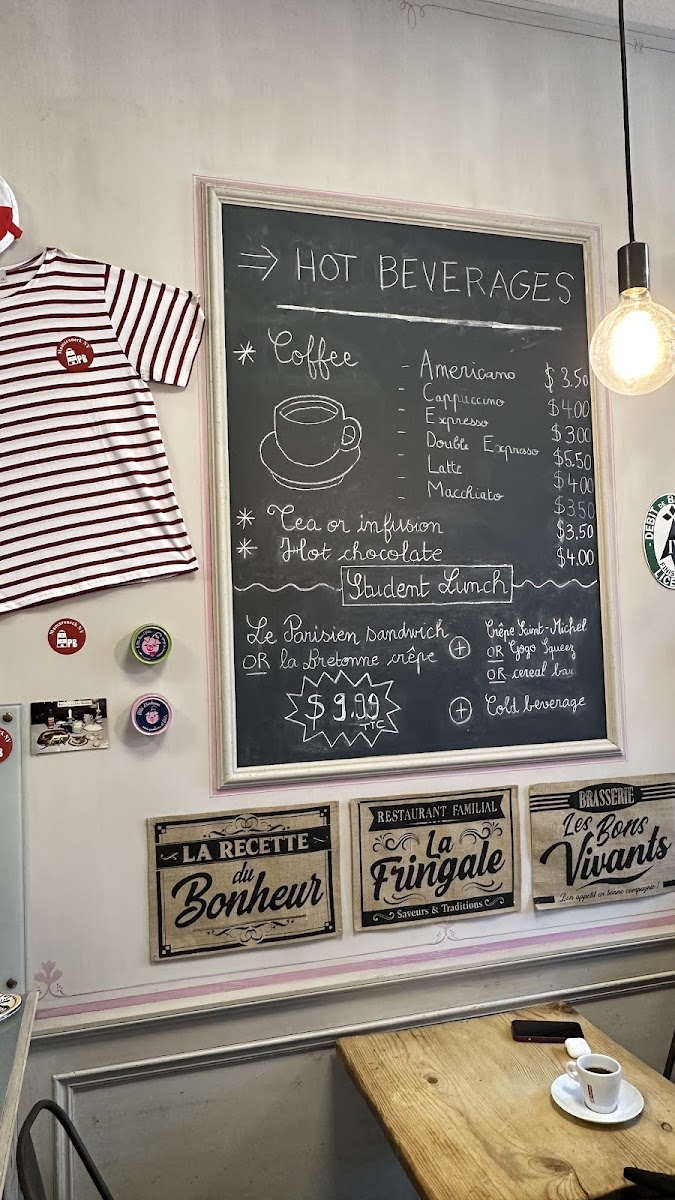 ⇒ HOT BEVERAGES
* Coffee
- Americano $3.50
- Cappuccino $4.00
- Expresso $3.00
- Double Expresso $5.50
- Latte $4.00
- Macchiato $3.50
* Tea or infusion $3.50
* Hot chocolate $4.00
Student Lunch
Le Parisien sandwich
OR la Bretonne crêpe
$9.99
TTC
+ Crêpe Saint-Michel
OR Gogo Squeez
OR cereal bar
+ Cold beverage
Mamaroneck NY
PB
Mamaroneck NY
PB
DEBIT DE
LA RECETTE
du
Bonheur
RESTAURANT FAMILIAL
La
Fringale
Saveurs & Traditions
BRASSERIE
Les Bons
Vivants
Bon appétit en bonne compagnie!